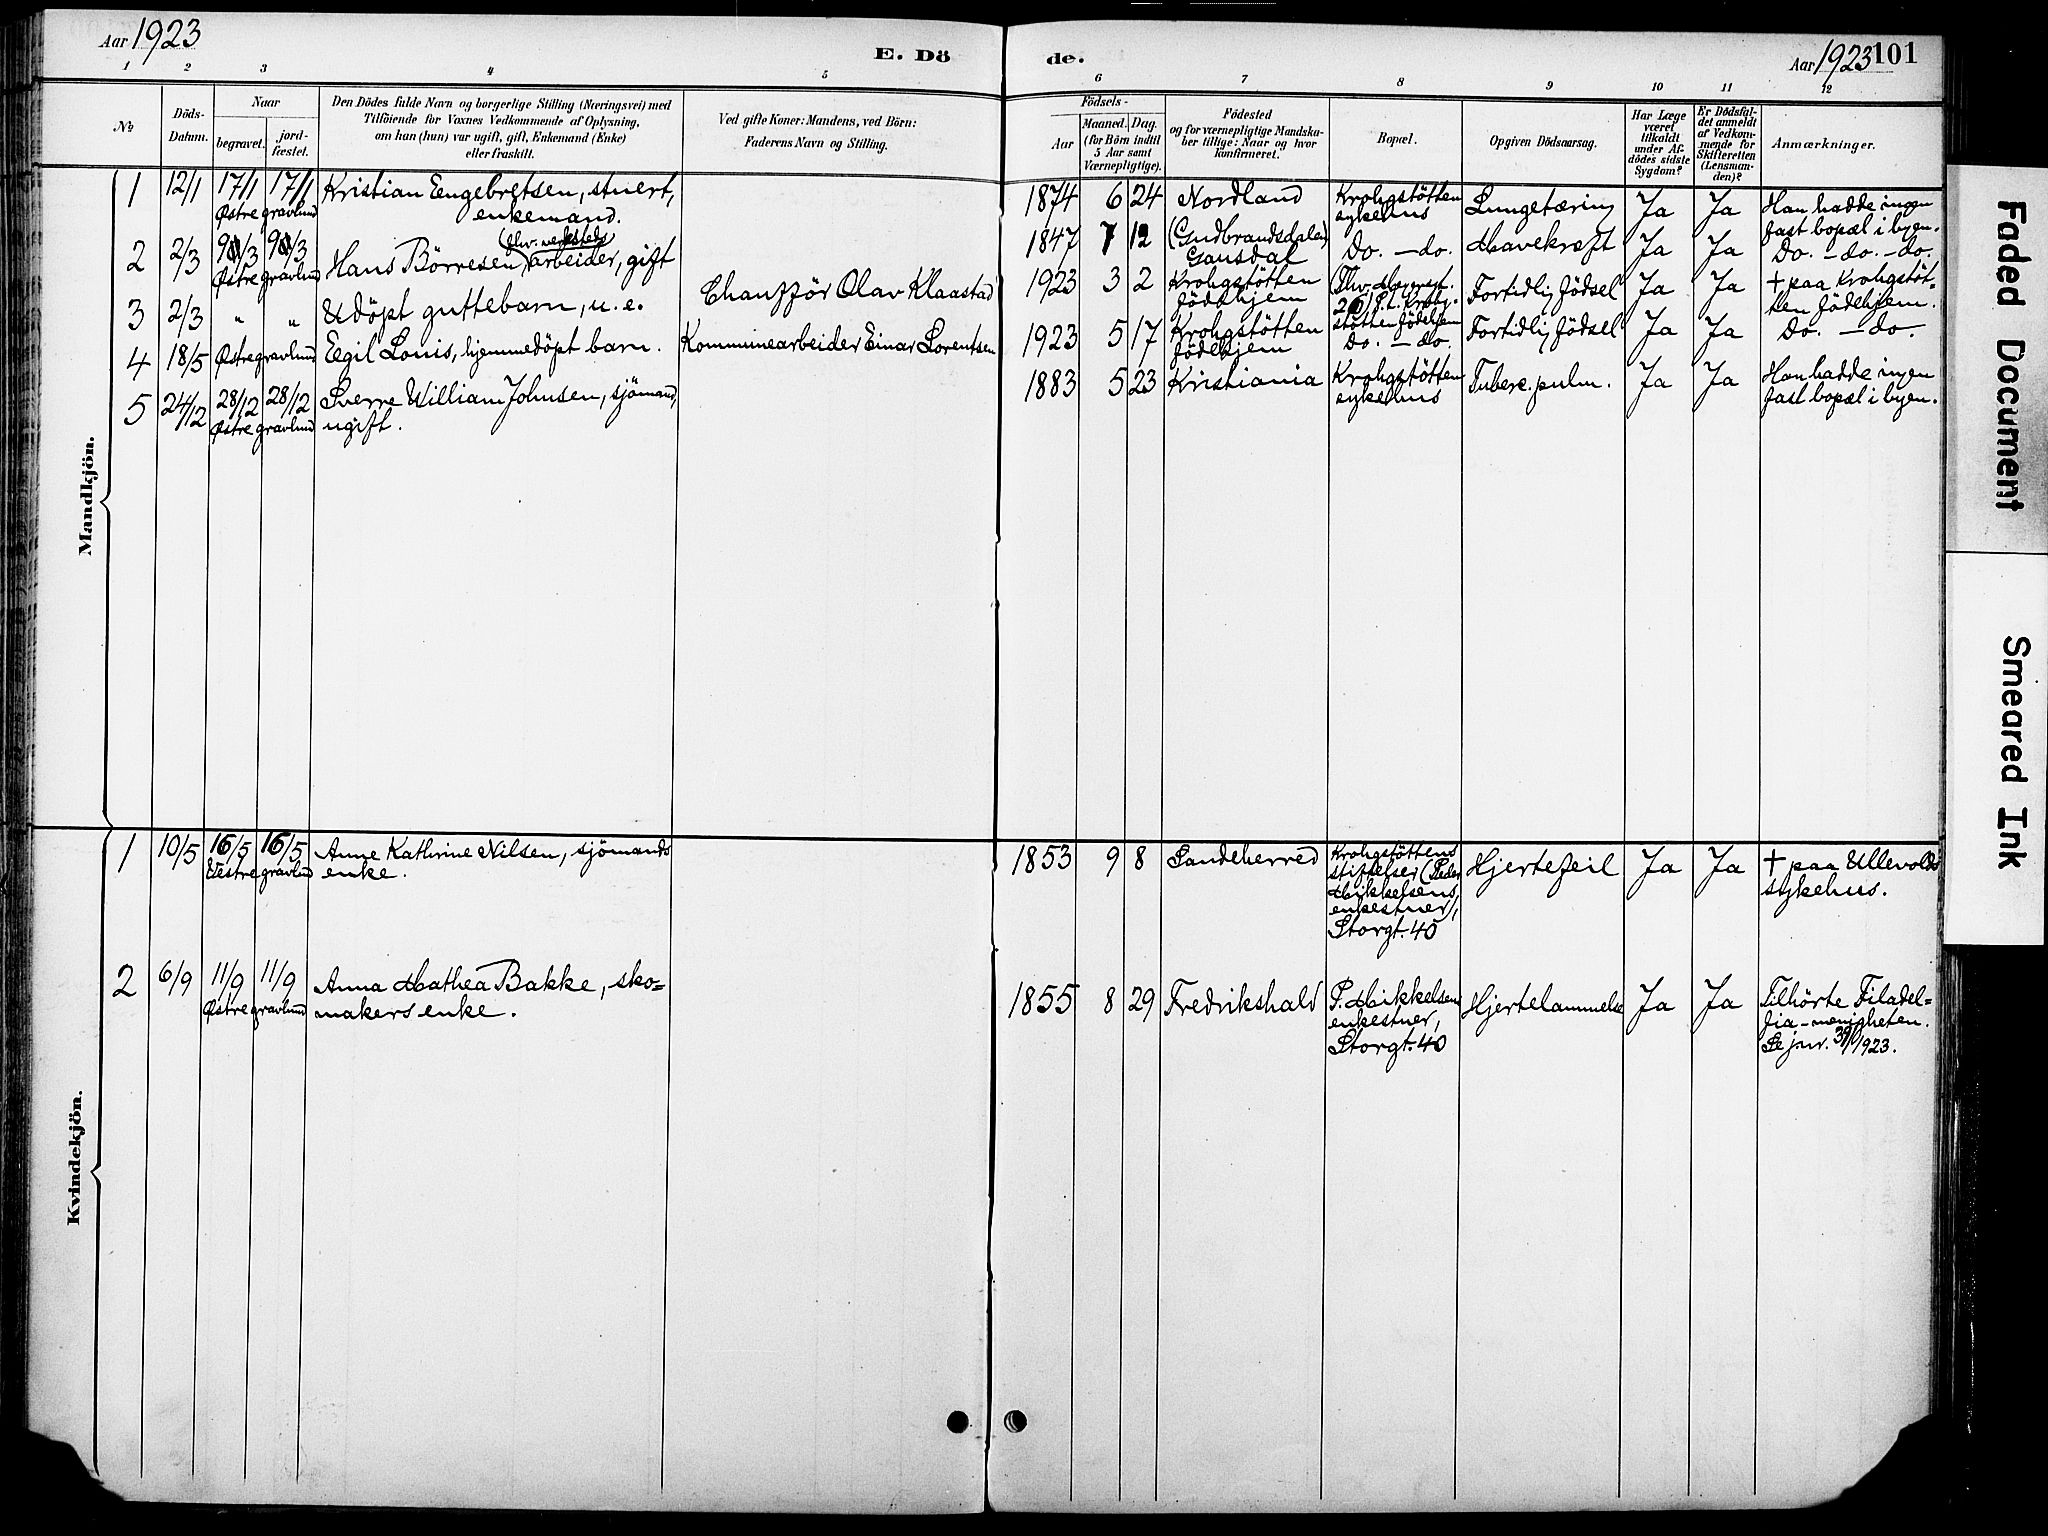 Aar 1923
E. Dö
de.
Aar 1923 101
1 2 3 4 5 6 7 8 9 10 11 12
№
Döds-
Datum.
Naar
begravet.
jord-
fæstet.
Den Dödes fulde Navn og borgerlige Stilling (Næringsvei) med
Tilföiende for Voxnes Vedkommende af Oplysning,
om han (hun) var ugift, gift, Enkemand (Enke)
eller fraskilt.
Ved gifte Koner: Mandens, ved Börn:
Faderens Navn og Stilling.
Födsels-
Aar
Maaned. Dag.
(for Börn indtil
5 Aar samt
Værnepligtige).
Födested
og for værnepligtige Mandska-
ber tillige: Naar og hvor
konfirmeret.
Bopæl.
Opgiven Dödsaarsag.
Har Læge
været
tilkaldt
under Af-
dödes sidste
Sygdom?
Er Dödsfal-
det anmeldt
af Vedkom-
mende for
Skifteretten
(Lensman-
den)?
Anmærkninger.
Mandkjön.
1 12/1 17/1 17/1 Kristian Engebretsen, stuert,
Østre gravlund enkemand.
1874 6 24 Nordland Krohgstötten
sykehus
Lungetæring Ja Ja Han hadde ingen
fast bopæl i byen.
2 2/3 9/3 9/3 Hans Börresen, arbeider, gift
(fhv. verksteds
Østre gravlund
1847 7 12 (Gudbrandsdalen)
Gausdal
Do. - do. Mavekræft Ja Ja Do. - do. - do.
3 2/3 " " Udöpt guttebarn, u. e.
Chaufför Olav Klaastad
1923 3 2 Krohgstötten
födehjem
Fortidlig födsel Ja Ja + paa Krohgstöt-
ten födehjem.
4 18/5 Østre gravlund Egil Louis, hjemmedöpt barn.
Kommunearbeider Einar Lorentsen
1923 5 17 Krohgstötten
födehjem
Do. - do. Fortidlig födsel Ja Ja Do. - do -
5 24/12 28/12 28/12 Sverre William Johnsen, sjömand,
Østre gravlund ugift.
1883 5 23 Kristiania Krohgstötten
sykehus
Tuberc. pulm. Ja Ja Han hadde ingen
fast bopæl i byen.
Kvindekjön.
1 10/5 16/5 16/5 Anne Kathrine Nilsen, sjömands
Vestre gravlund enke.
1853 9 8 Sandeherred Krohgstöttens
stiftelser (Peder
Mikkelsens
enkestuer),
Storgt. 40
Hjertefeil Ja Ja + paa Ullevold
sykehus.
2 6/9 11/9 11/9 Anna Mathea Bakke, sko=
Østre gravlund makers enke.
1855 8 29 Fredrikshald P. Mikkelsens
enkestuer,
Storgt. 40
Hjertelammelse Ja Ja Tilhörte Filadel=
fia-menigheten.
Se jnr. 1923.
Faded Document
Smeared Ink